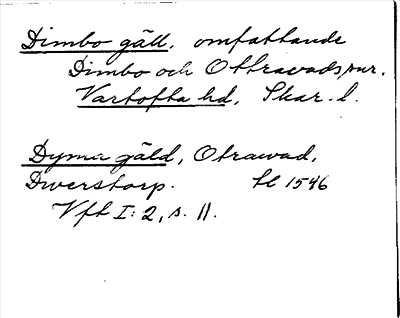 Dimbo gäll, omfattande
Dimbo och Ottravads snr.
Vartofta hd, Skar. l.
Dyma gäld, Otrawad,
Dwerstorp. Sl 1546
Vft I: 2, s. 11.